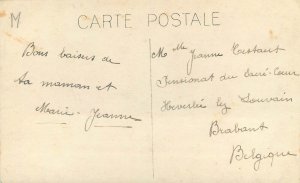 M
CARTE POSTALE
Bons baisers de
ta maman et
Marie-Jeanne
Mlle Jeanne
Pensionat du Sacré-Coeur
Heverlé lez Louvain
Brabant
Belgique